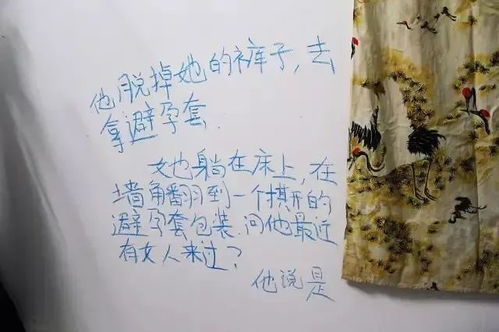 他脱掉她的裤子,去
拿避孕套
她躺在床上,在
墙角翻到一个撕开的
避孕套包装.问他最近
有女人来过?
他说是